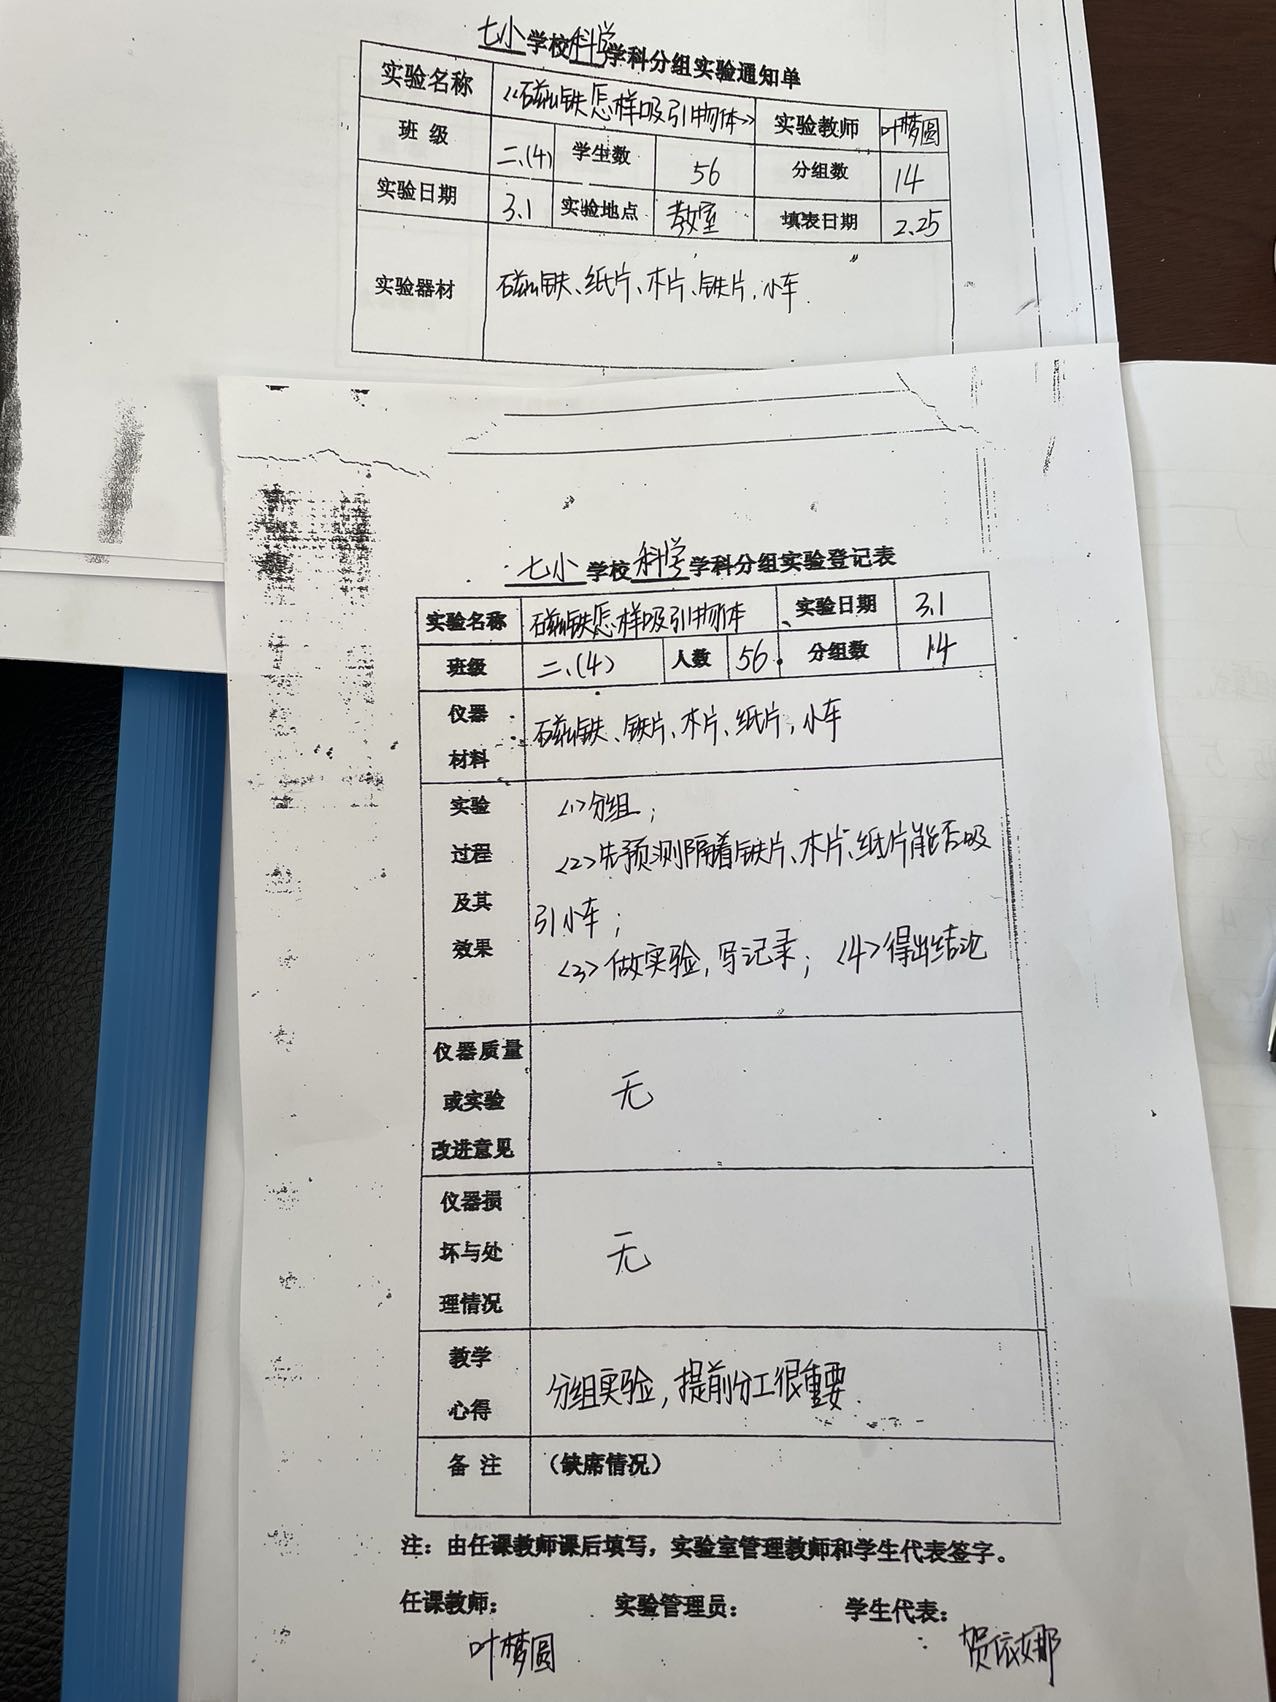 七小学校科学学科分组实验通知单
实验名称 《磁铁怎样吸引物体》 实验教师 叶梦圆
班 级 二、(4) 学生数 56 分组数 14
实验日期 3.1 实验地点 教室 填表日期 2.25
实验器材 磁铁、纸片、木片、铁片、小车
七小学校科学学科分组实验登记表
实验名称 磁铁怎样吸引物体 实验日期 3.1
班级 二、(4) 人数 56 分组数 14
仪器
材料
磁铁、铁片、木片、纸片、小车
实验
过程
及其
效果
<1>分组;
<2>先预测隔着铁片、木片、纸片能否吸
引小车;
<3>做实验,写记录; <4>得出结论
仪器质量
或实验
改进意见
无
仪器损
坏与处
理情况
无
教学
心得
分组实验,提前分工很重要.
备 注 (缺席情况)
注:由任课教师课后填写,实验室管理教师和学生代表签字。
任课教师: 实验管理员: 学生代表:
叶梦圆 贺依娜